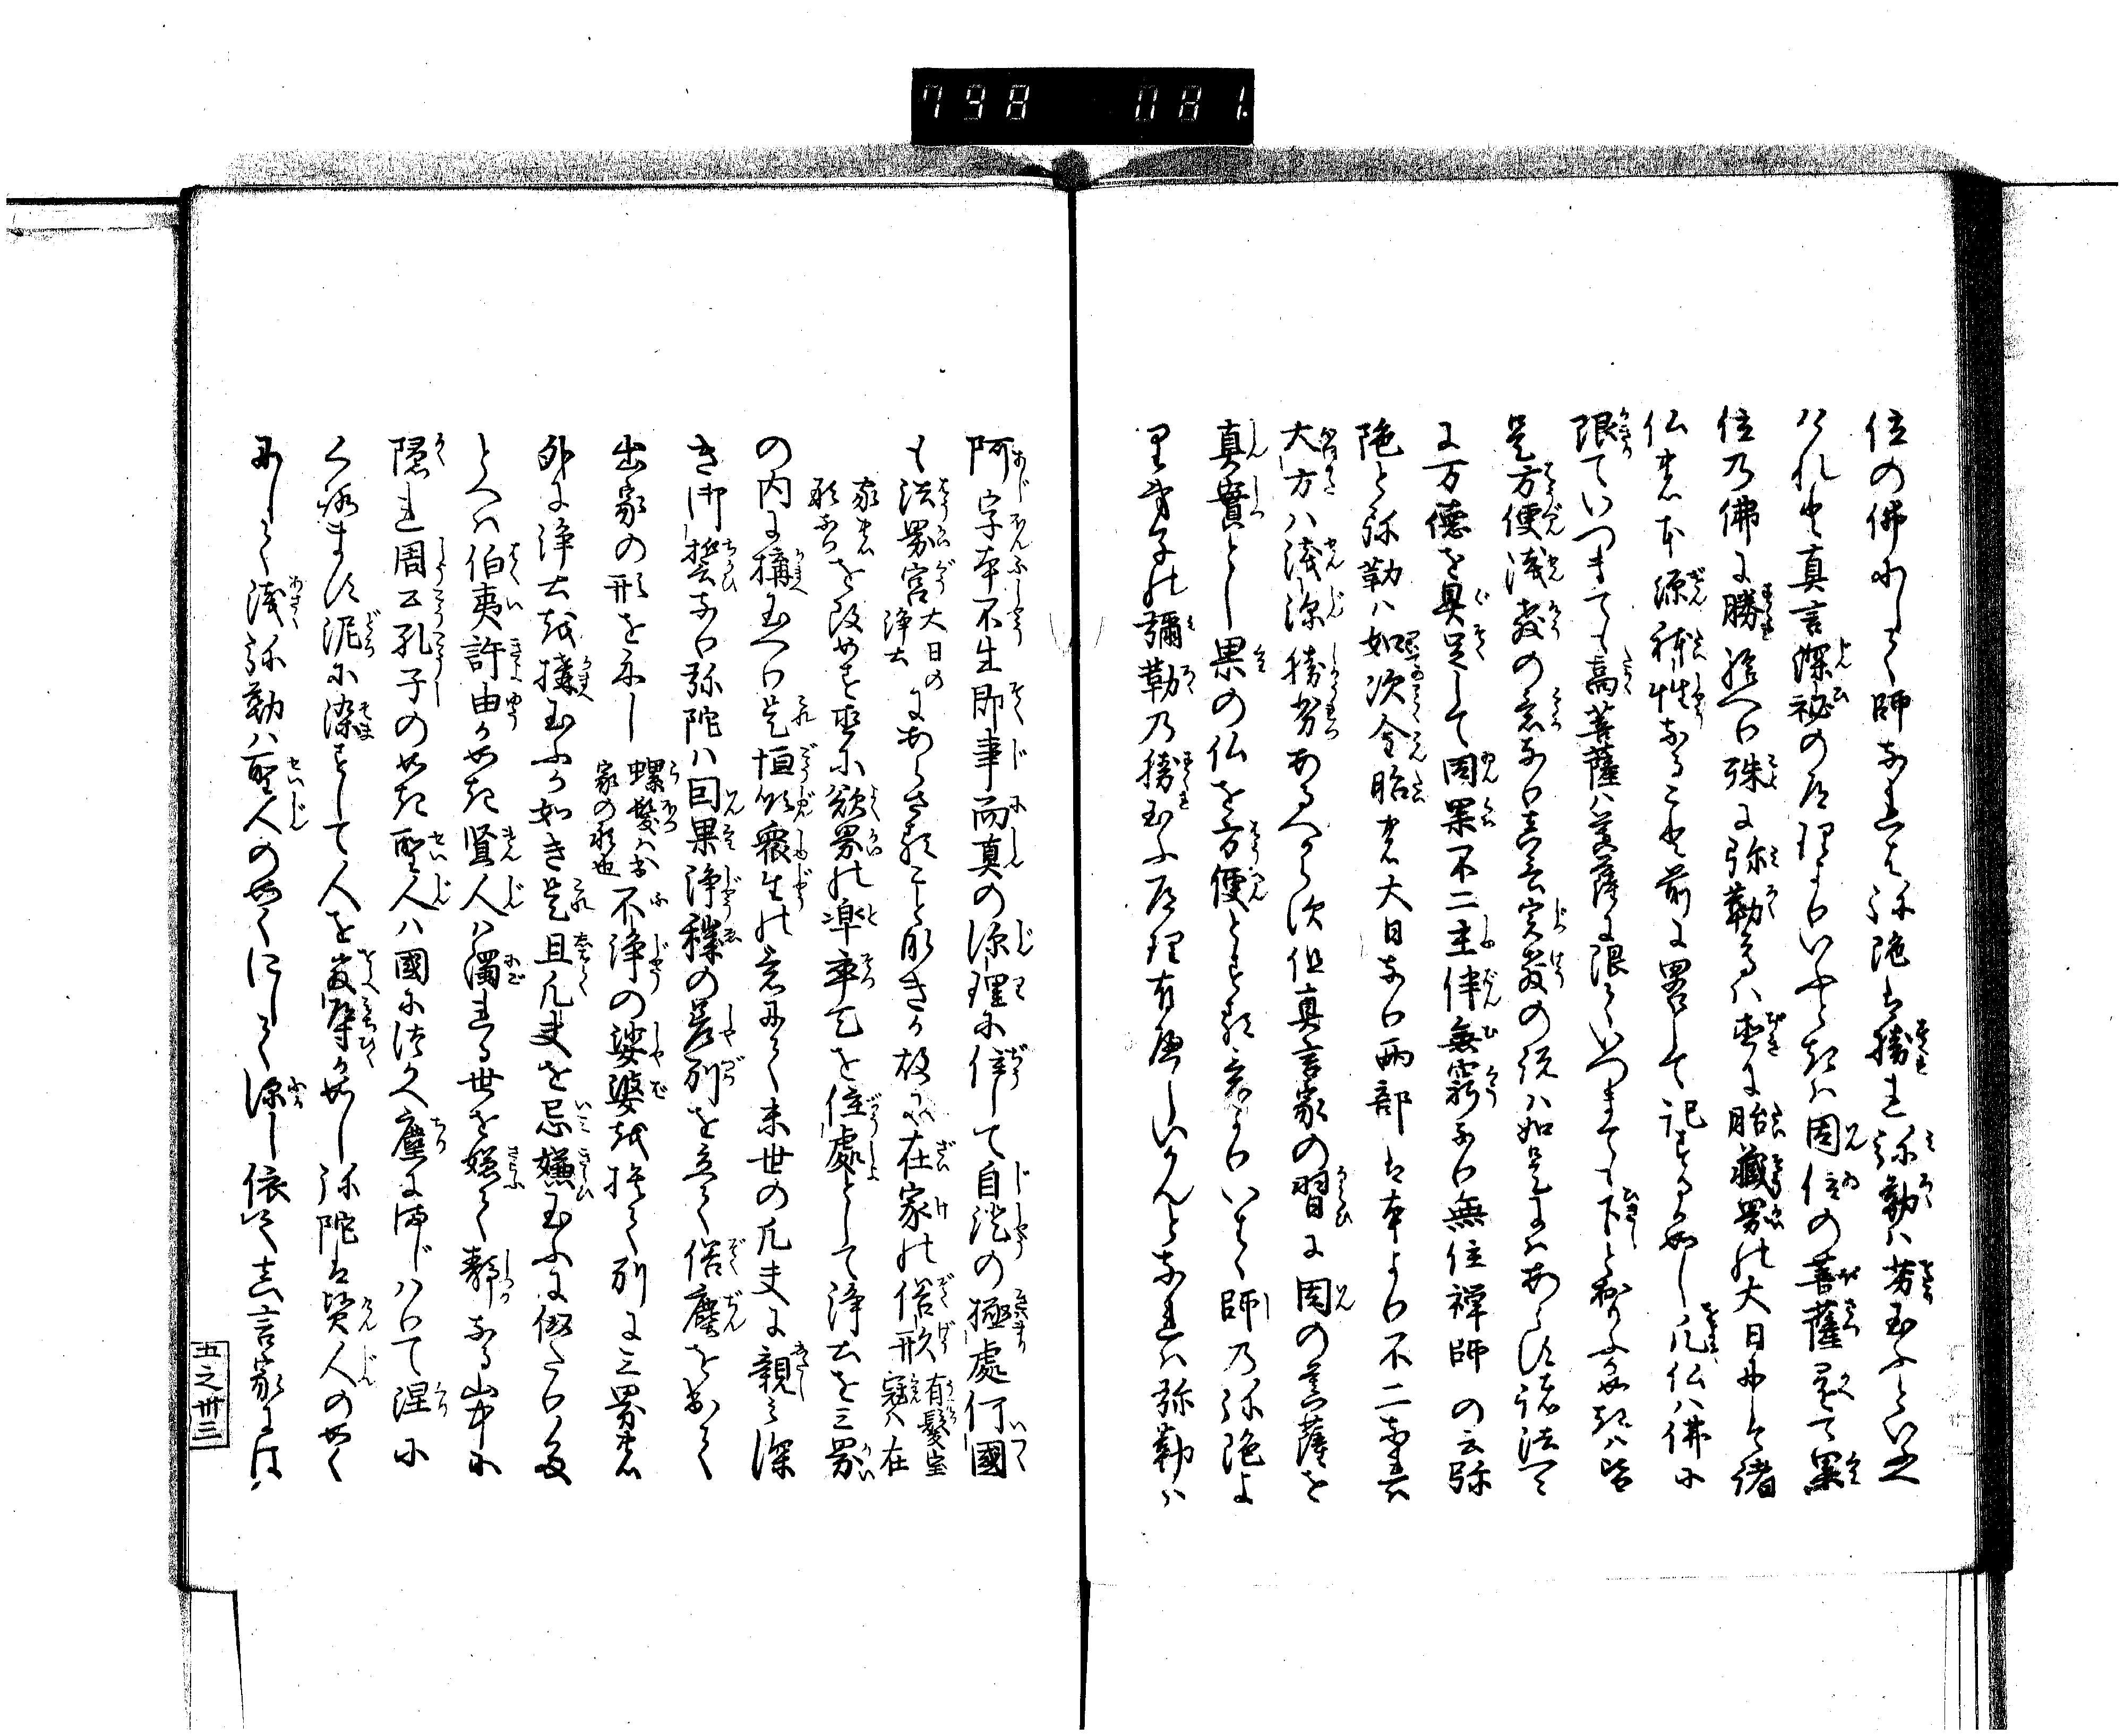 798 081
位の佛にして師なれは弥陀は勝れ弥勒ハ劣玉ふといへ
けれと真言深秘の道理よりいふときハ因位の菩薩還て果
位乃佛に勝給へり殊に弥勒ハ直に胎藏界の大日にして諸
仏の本源種性なること前に畧して記するか如し凡仏ハ佛に
限ていつまても高菩薩ハ菩薩に限ていつまても下と
是方便浅教の意なり真言実教の説ハ如是にハあらす諸法
に万徳を具足して因果不二主伴無窮なり無住禅師の云弥
陀と弥勒ハ如次金胎の大日なり両部は本より不二なれハ
大方ハ浅深勝劣あるへからす但真言家の習に因の菩薩を
真實とし果の仏を方便とする意よりいはゝ師乃弥陀よ
り弟子の彌勒乃勝玉ふ道理有へしいかんとなれハ弥勒ハ
阿字本不生即事而真の源理に住して自證の極處何國
も法界宮大日の浄土にあらさること無きか故に在家の俗形有髮宝冠ハ在
家の形なりを改めす亟に欲界の率天を住處として浄土を三界
の内に搆玉へり是恒順衆生の意にて末世の凡夫に親く深
き御誓なり弥陀ハ因果浄穢の差別を立て俗塵をおりて
出家の形を示し螺髮ハ出家の形也不浄の娑婆を捨て別に三界の
外に浄土を搆玉ふか如き是且凡夫を忌嫌玉ふに似たり
とへハ伯夷許由か如き賢人ハ濁れる世を嫌て静なる山中に
隠れ周公孔子の如き聖人ハ國に仕へ塵にまじハりて涅に
くろます泥に染すして人を教導か如し弥陀は賢人の如く
にして浅弥勒ハ聖人の如くにして深し依て真言家にハ
五之卅三